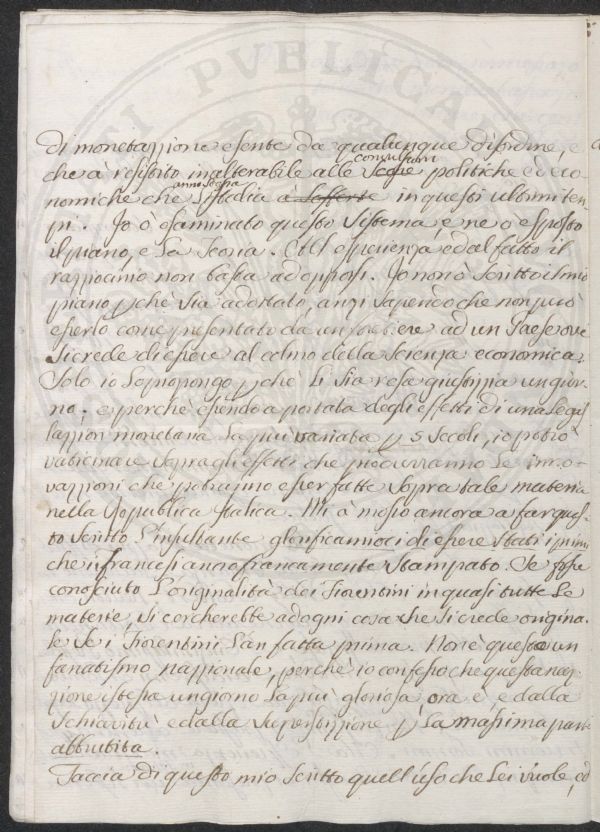 PVBLICAE
di monetazzione esente da qualunque disordine, e
che à resistito inalterabile alle Scosse convulsioni politiche ed eco
nomiche che l'Italia à sofferte anno Scossa in questi ultimi tem-
pi. Io ò esaminato questo Sistema, e ne ò esposto
il piano, e la Teoria. Coll'esperienza ed al fatto il
razziocinio non basta ad opporsi. Io non ò Scritto il mio
piano pchè Sia adottato, anzi Sapendo che non può
esserlo come presentato da un forestiere ad un Paese ove
Si crede di essere al colmo della Scienza economica.
Solo io lo propongo pchè li Sia resa giustizzia un gior-
no. e perchè essendo a portata degli effetti di una legis
lazzion monetaria la più variata p 5 Secoli, io potrò
vaticinare Sopra gli effetti che produrranno le inno-
vazzioni che potranno esser fatte Sopra tale materia
nella Repubblica Italica. Mi à mosso ancora a far ques-
to Scritto l'insultante glorificamioci di essere Stati i primi
che i francesi anno francamente Stampato. Se fosse
conosciuto l'originalità dei Fiorentini in quasi tutte le
materie, si cercherebbe ad ogni cosa che Si crede origina
le Se i Fiorentini l'an fatta prima. Non è questo un
fanatismo nazzionale, perchè io confesso che questa naz-
zione istessa un giorno la più gloriosa, ora è e dalla
Schiavitù e dalla Superstizzione p la massima parte
abbrutita.
Faccia di questo mio Scritto quell'uso che Lei vuole, ed